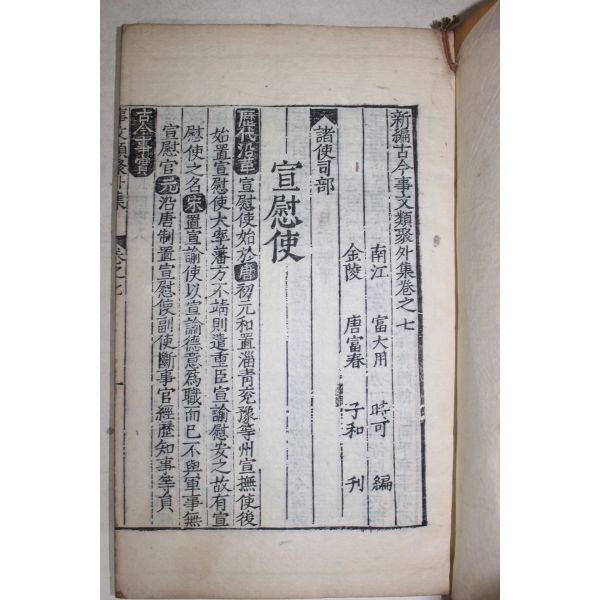 新編古今事文類聚外集卷之七
南江 富大用 時可 編
金陵 唐富春 子和 刊
諸使司部
宣慰使
歷代沿革宣慰使始於唐初元和置淄青兖豫等州宣撫使後
始置宣慰使大率藩方不靖則遣重臣宣諭慰安之故有宣
慰使之名宋置宣諭使以宣諭德意為職而已不與軍事無
宣慰官元沿唐制置宣慰使副使斷事官經歷知事等員
古今事實
事文類聚外集 卷之七